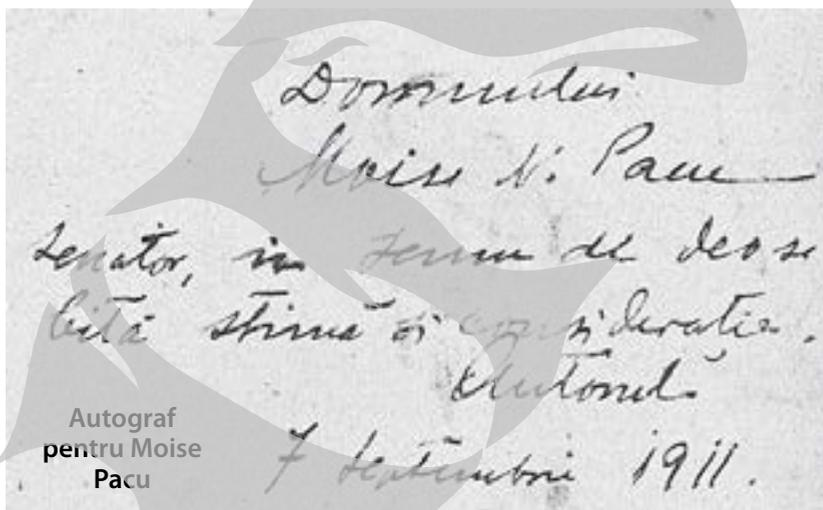 Domnului
Moise N. Pacu
senator, in semn de deose
bită stimă și considerație.
Autorul
7 Septembrie 1911.
Autograf
pentru Moise
Pacu